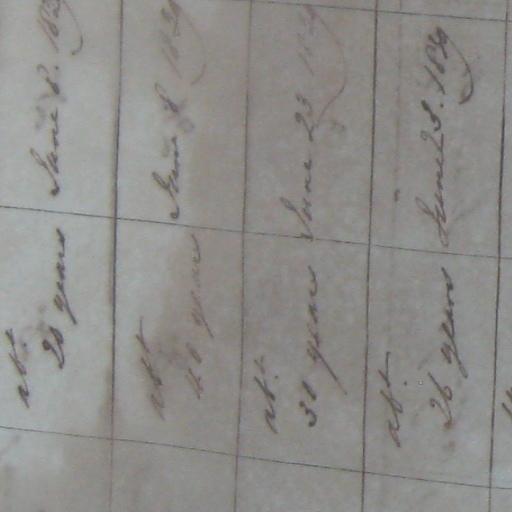 abt
20 years June 8. 1839
abt
40 years June 8 1839
abt
30 years June 23 1839
abt
26 years June 23. 1839